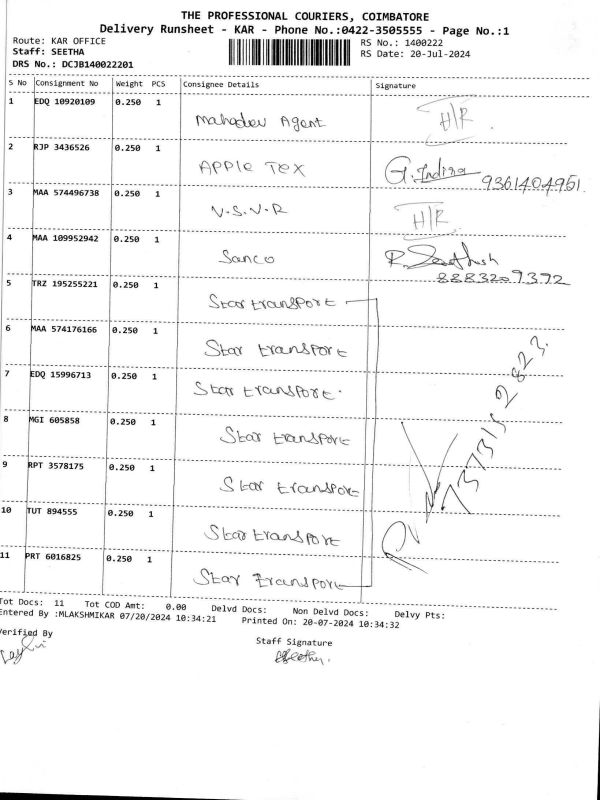 THE PROFESSIONAL COURIERS, COIMBATORE
Delivery Runsheet - KAR - Phone No.:0422-3505555 - Page No.:1
Route: KAR OFFICE RS No.: 1400222
Staff: SEETHA RS Date: 20-Jul-2024
DRS No.: DCJB140022201
S No Consignment No Weight PCS Consignee Details Signature
1 EDQ 10920109 0.250 1 Mahadev Agent H/R
2 RJP 3436526 0.250 1 APPle Tex G. Indira 9361404951
3 MAA 574496738 0.250 1 V.S.V.R H/R
4 MAA 109952942 0.250 1 Sanco
8883209392
5 TRZ 195255221 0.250 1 Star transPorte
6 MAA 574176166 0.250 1 Star transPorte
7 EDQ 15996713 0.250 1 Star transPorte
8 MGI 605858 0.250 1 Star transPorte
9 RPT 3578175 0.250 1 Star transPorte
10 TUT 894555 0.250 1 Star transPorte
11 PRT 6016825 0.250 1 Star transPorte
Tot Docs: 11 Tot COD Amt: 0.00 Delvd Docs: Non Delvd Docs: Delvy Pts:
Entered By :MLAKSHMIKAR 07/20/2024 10:34:21 Printed On: 20-07-2024 10:34:32
Verified By Staff Signature